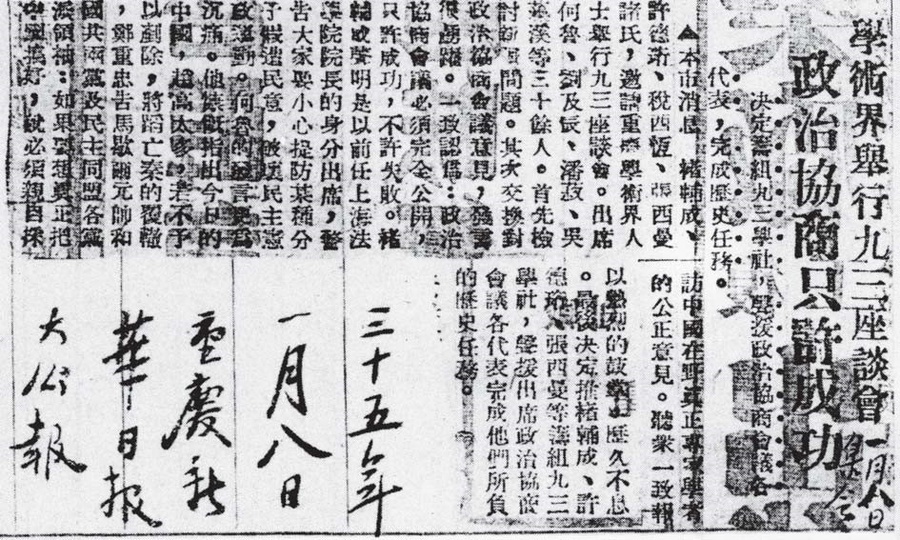 學術界舉行九三座談會
一月八日
政治協商只許成功
決定籌組九三學社,聲援政治協商會議各
代表,完成歷史任務。
▲本市消息 褚輔成、
許德珩、稅西恆、張西曼
諸氏,邀請重慶學術界人
士舉行九三座談會。出席
何魯、劉及辰、潘菽、吳
藻溪等三十餘人。首先檢
討 問題。其次交換對
政治協商會議意見,發言
很踴躍。一致認爲:政治
協商會議必須完全公開,
只許成功,不許失敗。褚
輔成聲明是以前任上海法
學院院長的身分出席,警
告大家要小心提防某種分
子假造民意,破壞民主憲
政運動。何魯的發言更爲
沉痛。他慷慨指出今日的
中國, 若不予
以剷除,將蹈亡秦的覆轍
,鄭重忠告馬歇爾元帥和
國共兩黨及民主同盟各黨
派領袖:如果要想真正把
中國 好,就必須親自探
訪中國在野真正專家學者
的公正意見。聽衆一致報
以熱烈的鼓掌。歷久不息
。最後決定推褚輔成、許
德珩、張西曼等籌組九三
學社,聲援出席政治協商
會議各代表完成他們所負
的歷史任務。
三十五年
一月八日
重慶新
華日报
大公報